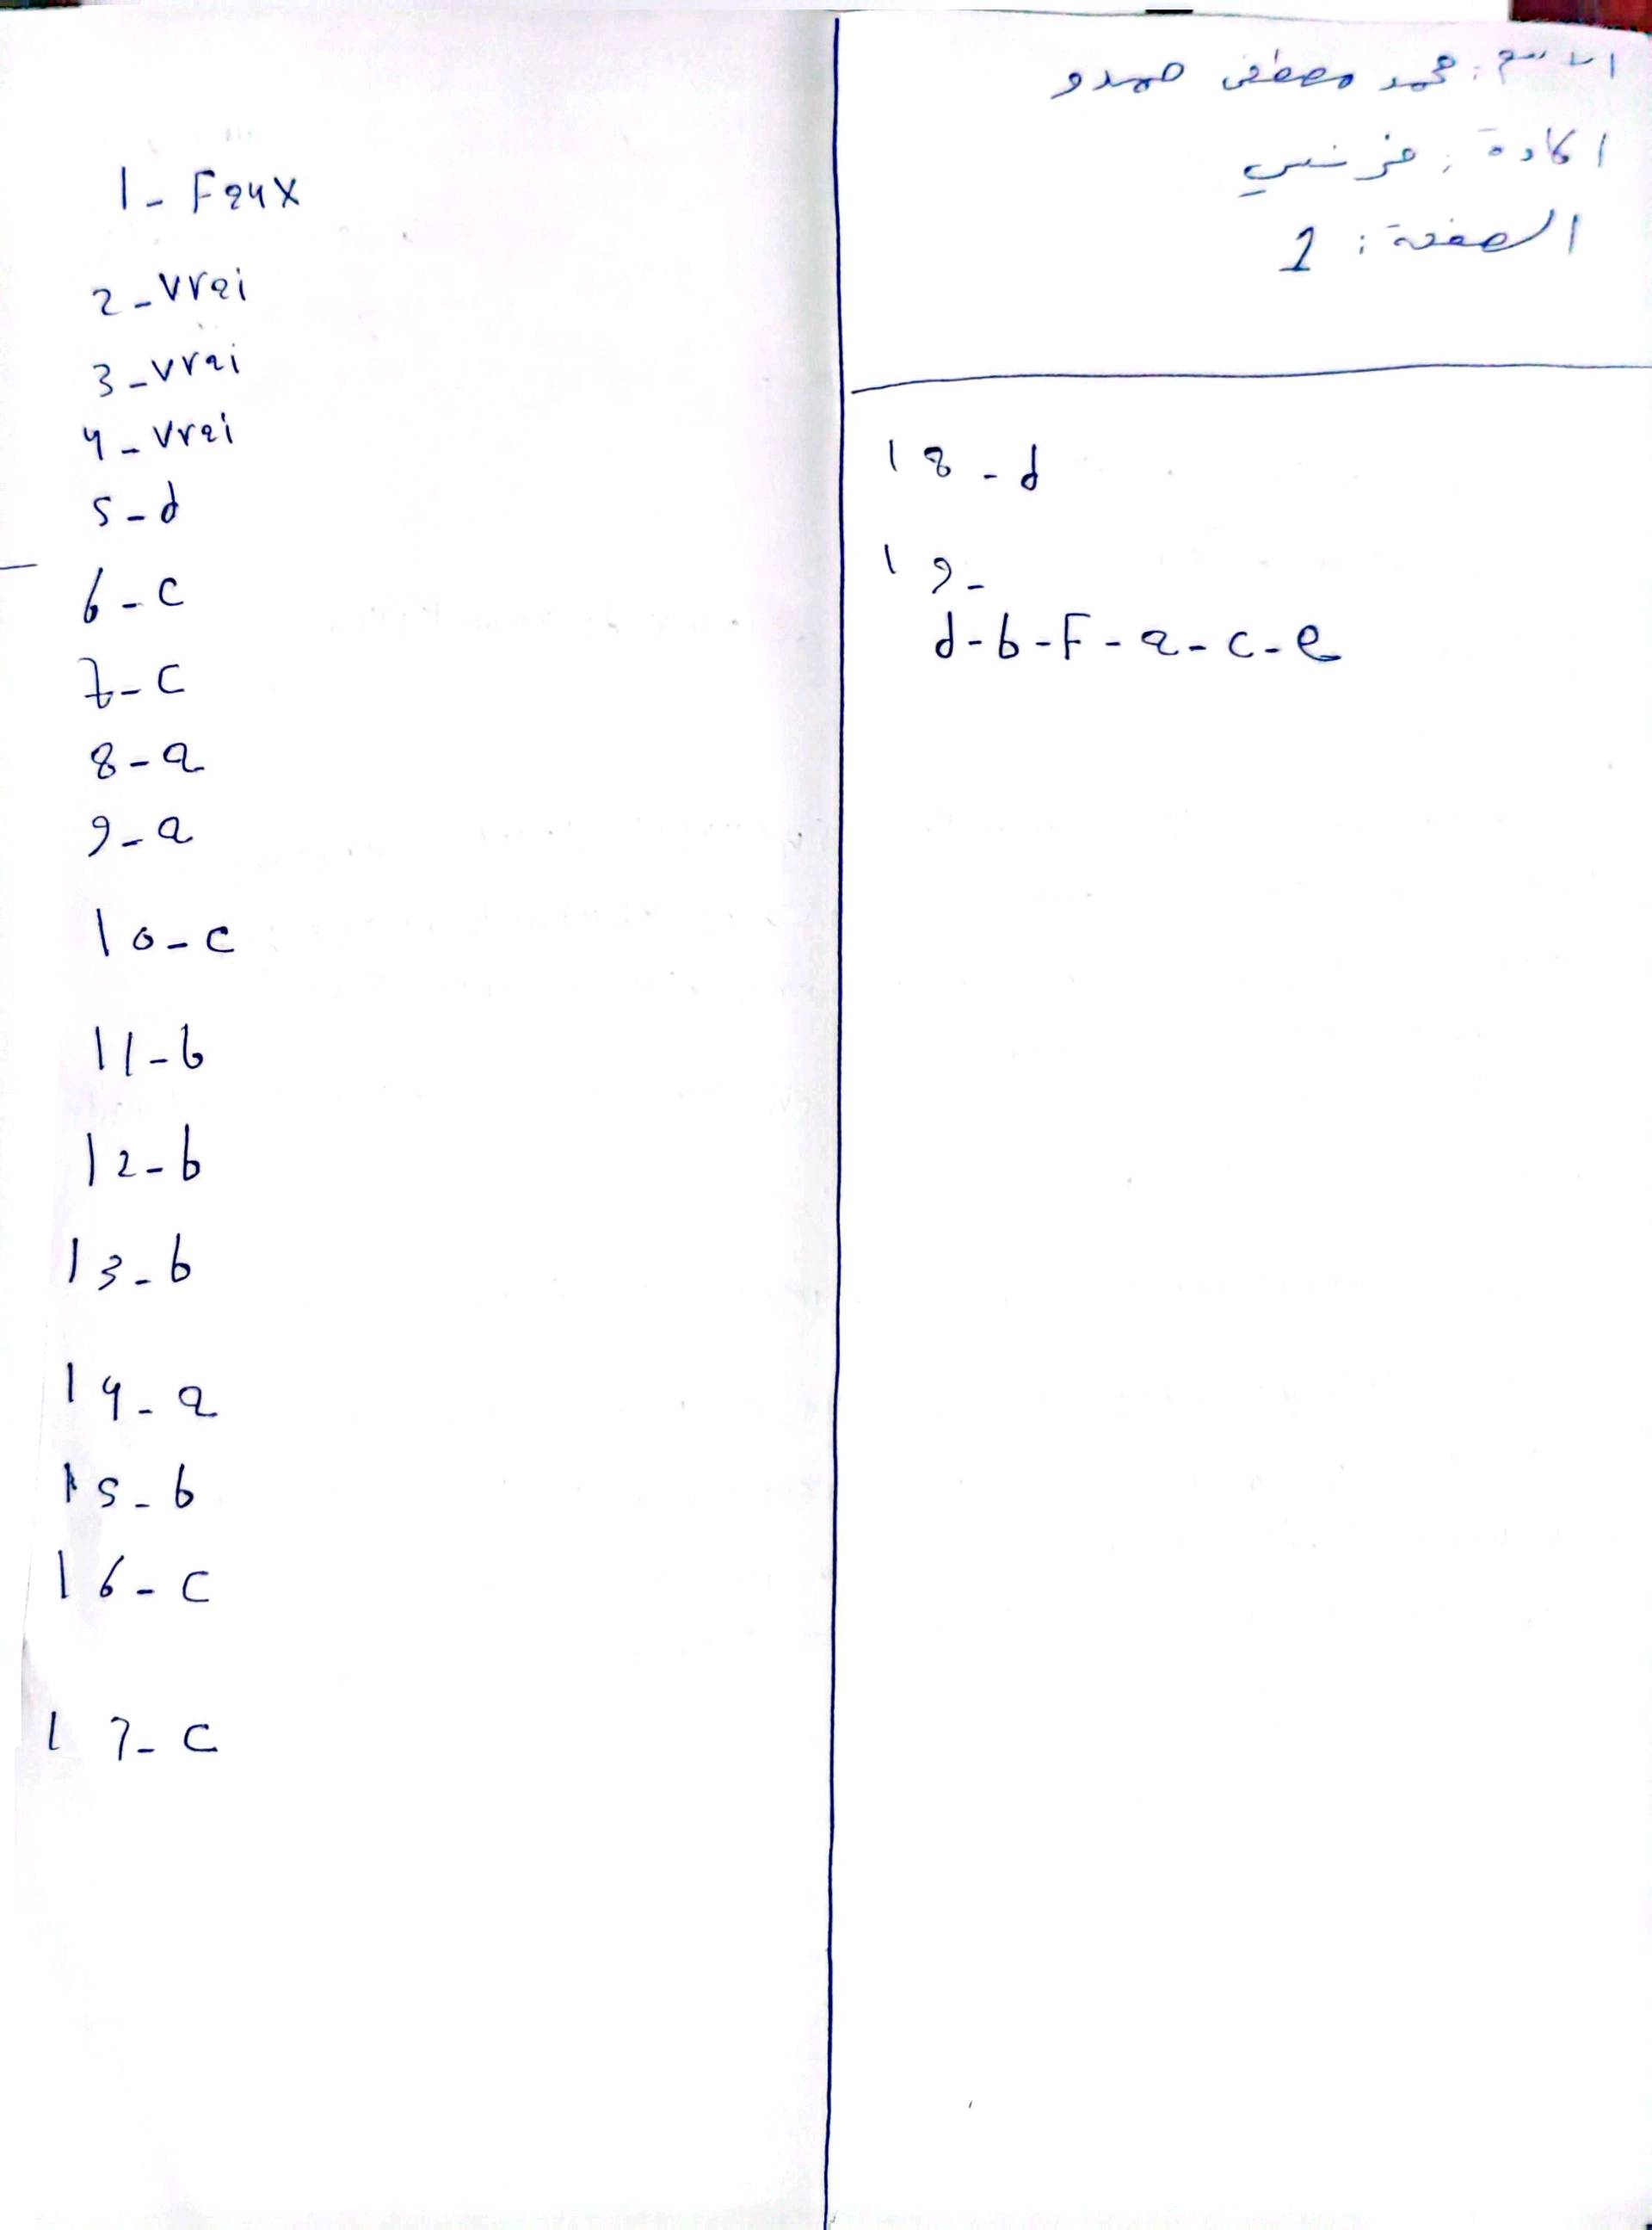 الاسم : محمد مصطفى حمدو
المادة : فرنسي
الصفحة : 1
1 - Faux
2 - vrai
3 - vrai
4 - vrai
5 - d
6 - c
7 - c
8 - a
9 - a
10 - c
11 - b
12 - b
13 - b
14 - a
15 - b
16 - c
17 - c
18 - d
19 -
d - b - F - a - c - e